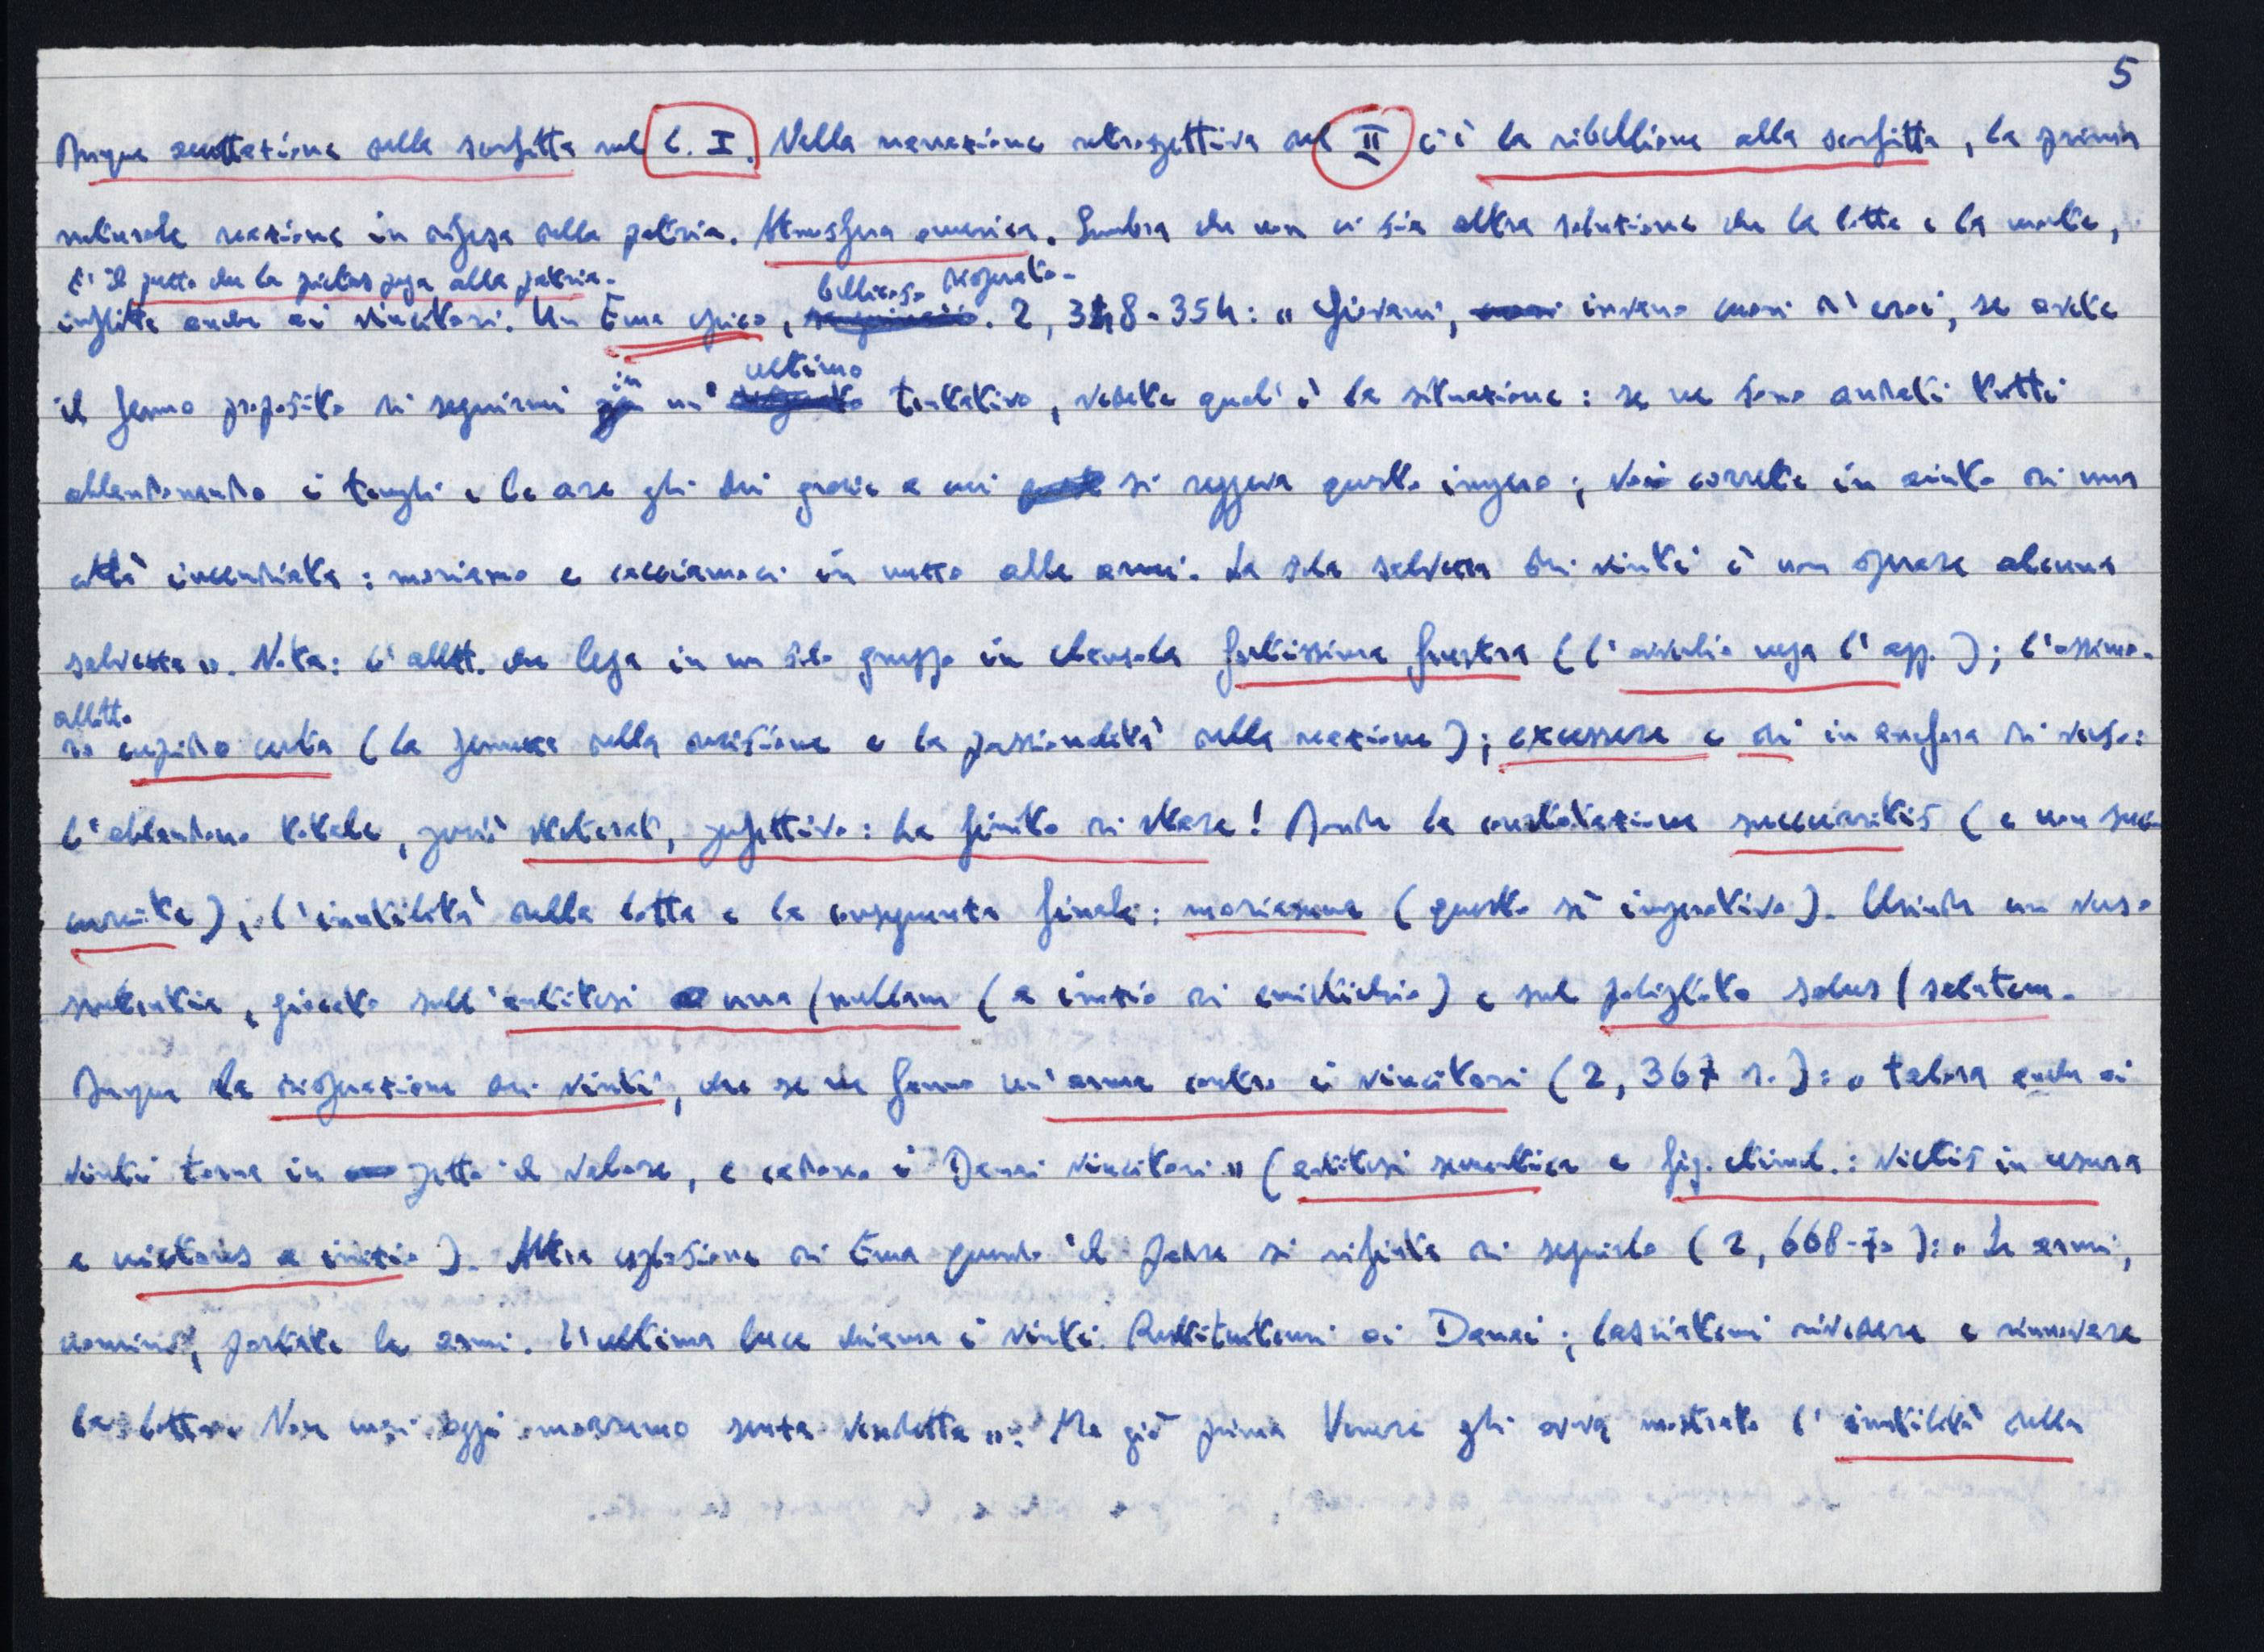 5
Dunque accettazione della sconfitta nel l. I. Nella narrazione retrospettiva del II c'è la ribellione alla sconfitta, la prima
naturale reazione in difesa della patria. Atmosfera omerica. Sembra che non ci sia altra soluzione che la lotta e la morte,
È il prezzo che la pietas paga alla patria.
bellicoso disperato.
inflitta anche ai vincitori. Un Enea epico, 2, 348-354: « Giovani, invano cuori d'eroi, se avete
in ultimo
il fermo proposito di seguirmi un' tentativo, vedete qual'è la situazione: se ne sono andati tutti
abbandonando i templi e le are gli dei grazie a cui si reggeva questo impero; voi correte in aiuto di una
città incendiata: moriamo e cacciamoci in mezzo alle armi. La sola salvezza dei vinti è non sperare alcuna
salvezza ». Nota: l'allitt. che lega in un solo gruppo in clausola fortissima frustra (l'avverbio nega l'agg.); l'ossimo-
allitt.
ro cupido certa (la fermezza della decisione e la passionalità della reazione); excessere e di in anafora di verso:
l'abbandono totale, perfettivo: ha finito di stare! Donde la constatazione succurritis (e non suc-
currite), l'inutilità della lotta e la conseguenza finale: moriamur (questo sì imperativo). Chiude un verso
sentenzia, giocato sull'antitesi una / nullam (a inizio di emistichio) e sul poliptoto salus / salutem.
Dunque la disperazione dei vinti, che se ne fanno un'arma contro i vincitori (2, 367 s.): « talora anche ai
vinti torna in petto il valore, e cadono i Danai vincitori » (antitesi semantica e fig. etimol.: victis in cesura
e victores a inizio). Altra esplosione di Enea quando il padre si rifiuta di seguirlo (2, 668-70): « Le armi,
uomini, portate le armi. L'ultima luce chiama i vinti. Restituitemi ai Danai; lasciatemi rivedere e rinnovare
la lotta. Non mai oggi morremo senza vendetta ». Ma già prima Venere gli aveva mostrato l'inutilità della